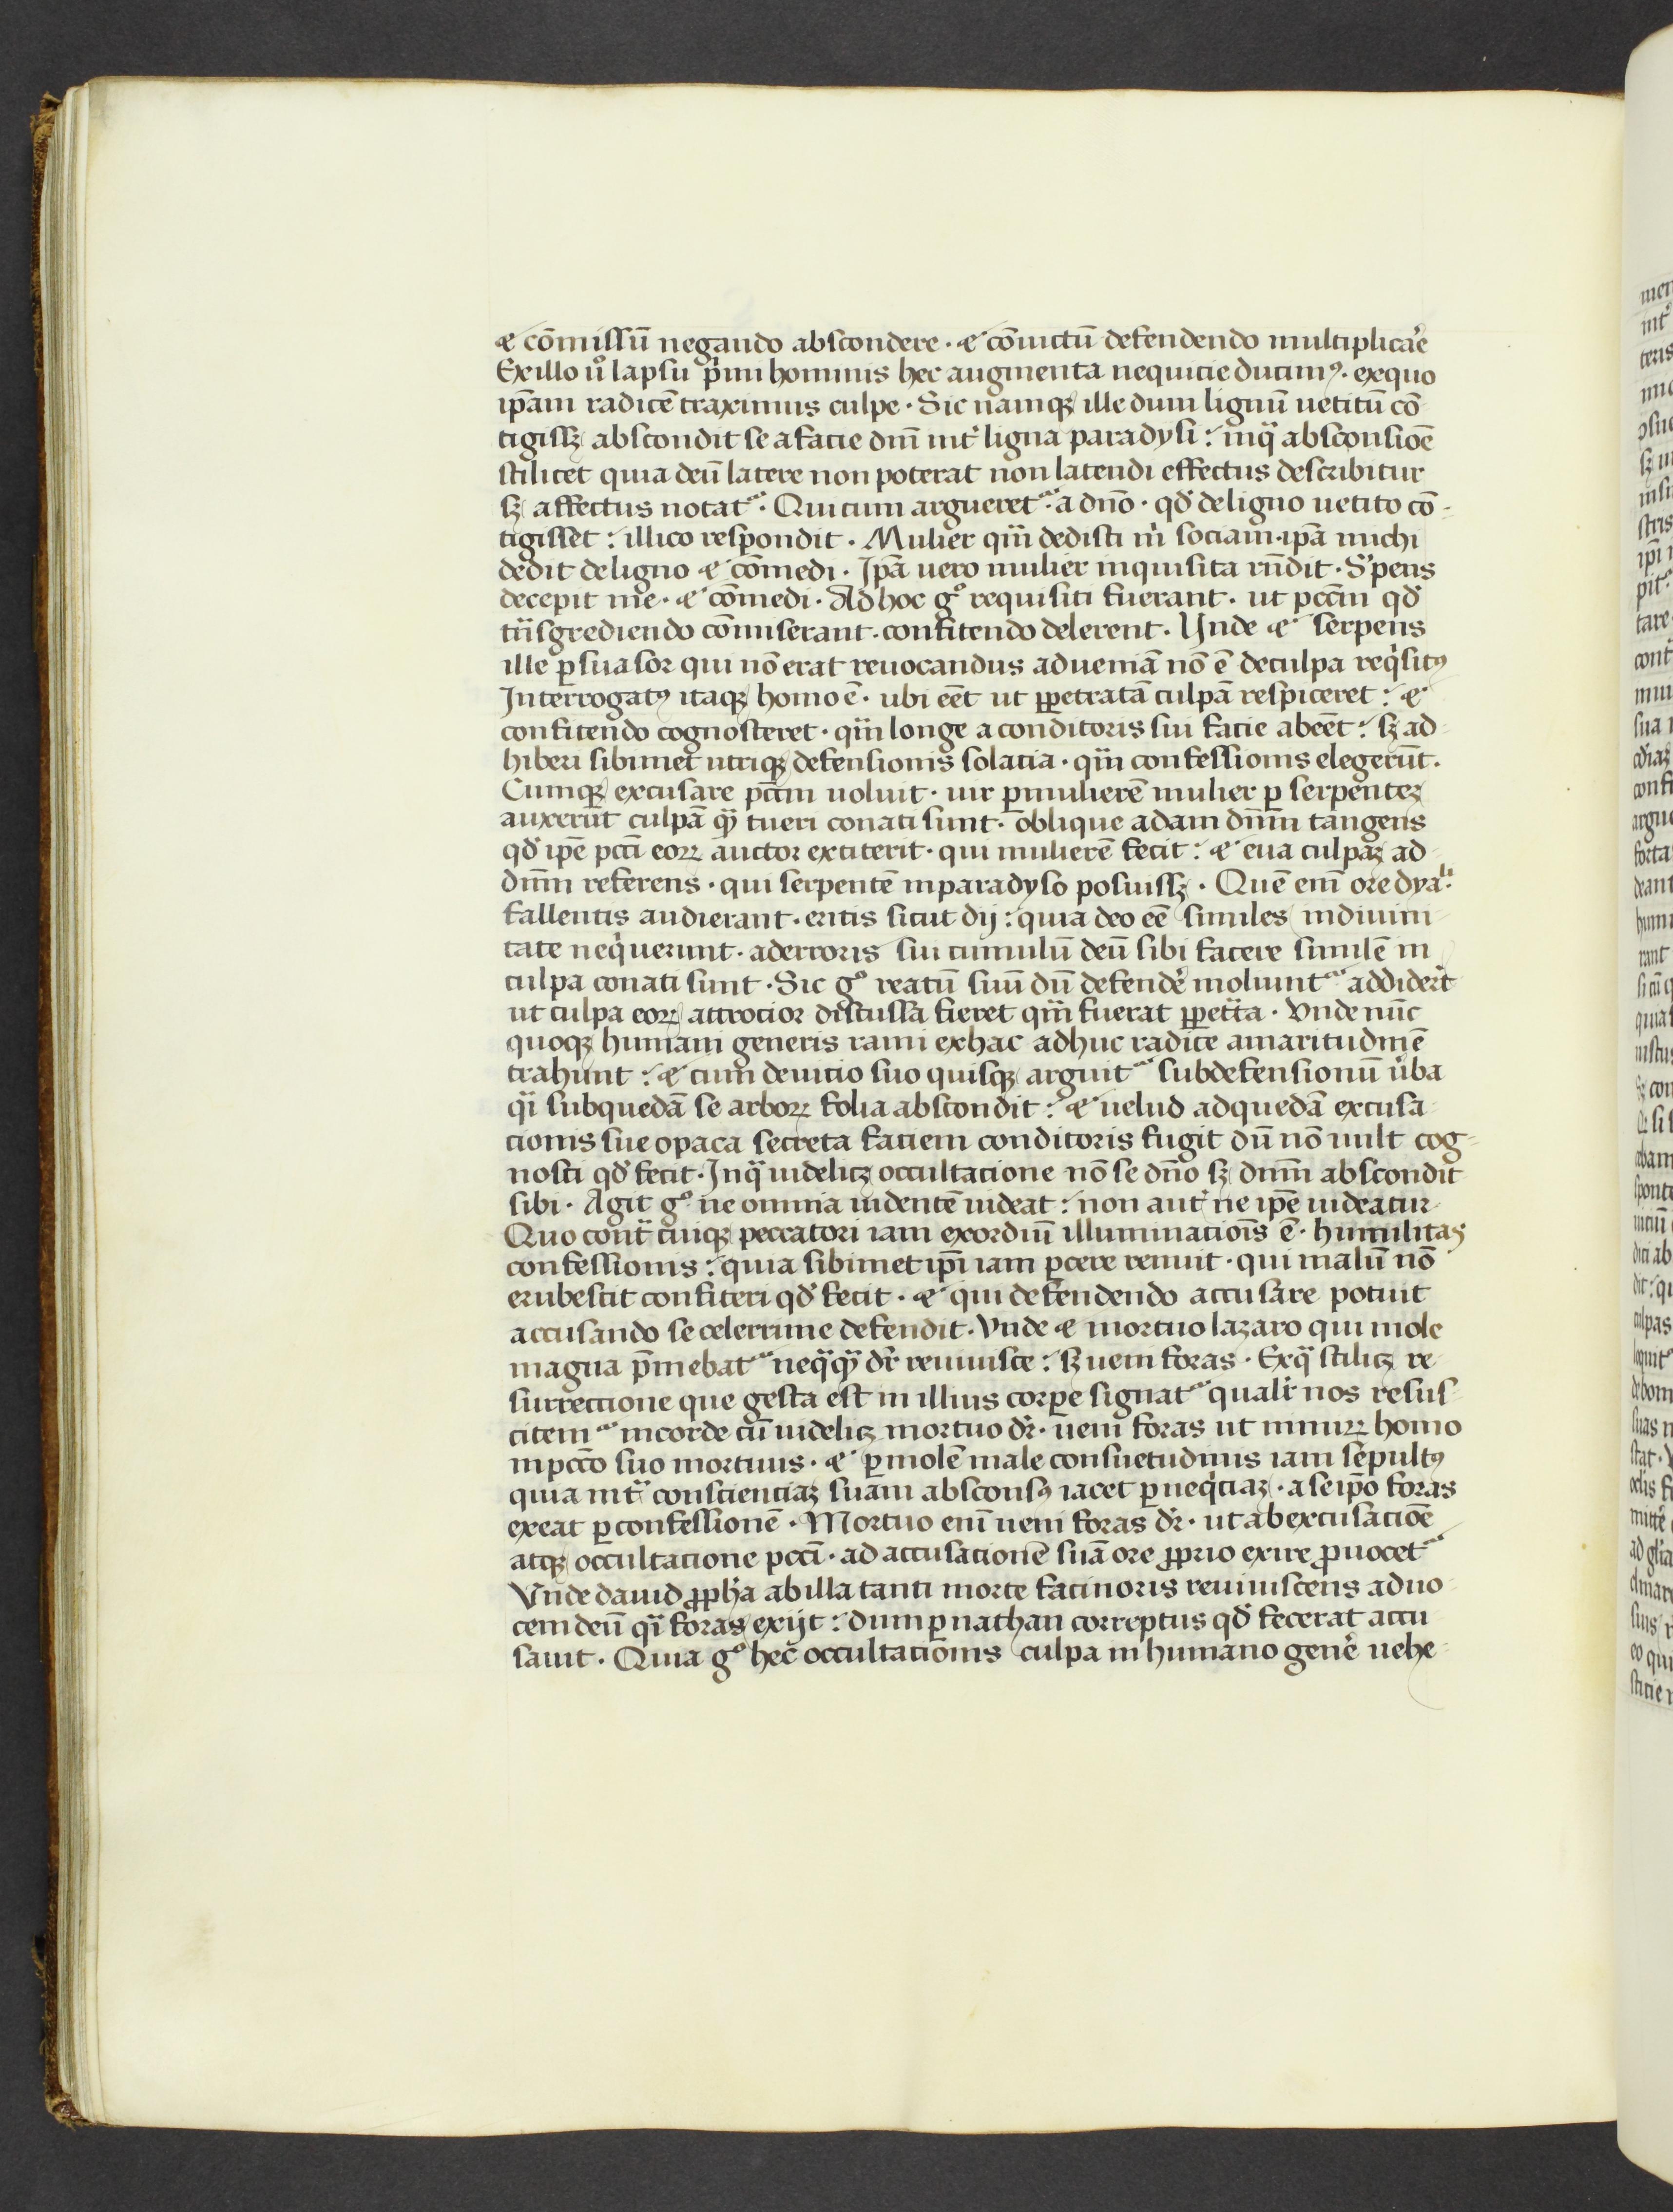 ⁊ cōmissū negando abscondere · ⁊ cōuictū defendendo multiplicar̉e
Ex illo u̾o lapsu p̾mi hominis hec augmenta nequicie ducim⁹ · ex quo
ip̄am radicē traximus culpe · Sic namqꝫ ille dum lignū uetitū cō
tigissꝫ abscondit se a facie dn̄i int̾ ligna paradysi : in qᷓ absconsiōe
scilicet quia deū latere non poterat non latendi effectus describitur
sꝫ affectus notat᷑ · Qui cum argueret᷑ a dn̄o · qd̾ de ligno uetito cō-
tigisset : illico respondit · Mulier quā dedisti m̉ sociam · ipā michi
dedit de ligno ⁊ cōmedi · Ipā uero mulier inquisita rn̄dit · S̾pens
decepit me · ⁊ cōmedi · Ad hoc gº requisiti fuerant · ut pccm̄ qd̾
tᷓnsgrediendo cōmiserant · confitendo delerent · Unde ⁊ serpens
ille ꝑsuasor qui nō erat reuocandus ad ueniā nō ē de culpa req̉sitꝰ
Interrogatꝰ itaqꝫ homo ē · ubi eēt ut ꝑpetratā culpā respiceret : ⁊
confitendo cognosceret · qᷓm longe a conditoris sui facie abeēt : sꝫ ad-
hiberi sibimet utriqꝫ defensionis solacia · qᷓm confessionis elegerūt ·
Cumqꝫ excusare pccm̄ uoluit · uir ꝑ mulierē mulier ꝑ serpenteꝫ
auxerūt culpā qᷓ tueri conati sunt · oblique adam dn̄m tangens
qd̾ ipē pccī eoꝝ auctor extiterit · qui mulierē fecit : ⁊ eua culpaꝫ ad
dn̄m referens · qui serpentē in paradyso posuissꝫ · Quē enī ore dyaˡⁱ
fallentis audierant · eritis sicut dij : quia deo eē similes in diuini-
tate neq̉uerunt · ad erroris sui cumulū deū sibi facere similē in
culpa conati sunt · Sic gº reatū suū dū defender̉ moliunt᷑ addider̄t
ut culpa eoꝝ atrocior discussa fieret qᷓm fuerat ꝑpetᷓta · Vnde nūc
quoqꝫ humani generis rami ex hac adhuc radice amaritudinē
trahunt : ⁊ cum de uicio suo quisqꝫ arguit᷑ sub defensionū u̾ba
qᷓi sub quedā se arboꝝ folia abscondit : ⁊ uelud ad quedā excusa
cionis sue opaca secreta faciem conditoris fugit dū nō uult cog-
nosci qd̾ fecit · In qᷓ uidelicꝫ occultacione nō se dn̄o sꝫ dn̄m abscondit
sibi · Agit gº ne omnia uidentē uideat : non aut̄ ne ipē uideatur
Quo contᷓ cuiqꝫ peccatori iam exordiū illuminaciōis ē · humilitas
confessionis : quia sibimet ipī iam ꝑcere renuit · qui malū nō
erubescit confiteri qd̾ fecit · ⁊ qui defendendo accusare potuit
accusando se celerrime defendit · Vnde ⁊ mortuo lazaro qui mole
magna p̄mebat᷑ neqᷓqᷓ dr̄ reuiuisce : sꝫ ueni foras · Ex qᷓ scilicꝫ re-
surrectione que gesta est in illius corpe signat᷑ qualit̉ nos resus-
citem᷑ in corde cū uidelicꝫ mortuo dr̄ · ueni foras ut nimiꝝ homo
in pccō suo mortuus · ⁊ ꝑ molē male consuetudinis iam sepultꝰ
quia intᷓ conscienciaꝫ suam absconsꝰ iacet ꝑ neq̉ciaꝫ · a seipō foras
exeat ꝑ confessionē · Mortuo enī ueni foras dr̄ · ut ab excusaciōe
atqꝫ occultacione pccī · ad accusacionē suā ore ꝓprio exire ꝓuocet᷑
Vnde dauid ꝓpħa ab illa tanti morte facinoris reuiuiscens ad uo
cem deū qᷓi foras exijt : dum ꝑ nathan correptus qd̾ fecerat accu
sauit · Quia gº hec occultacionis culpa in humano gener̉ uehe-